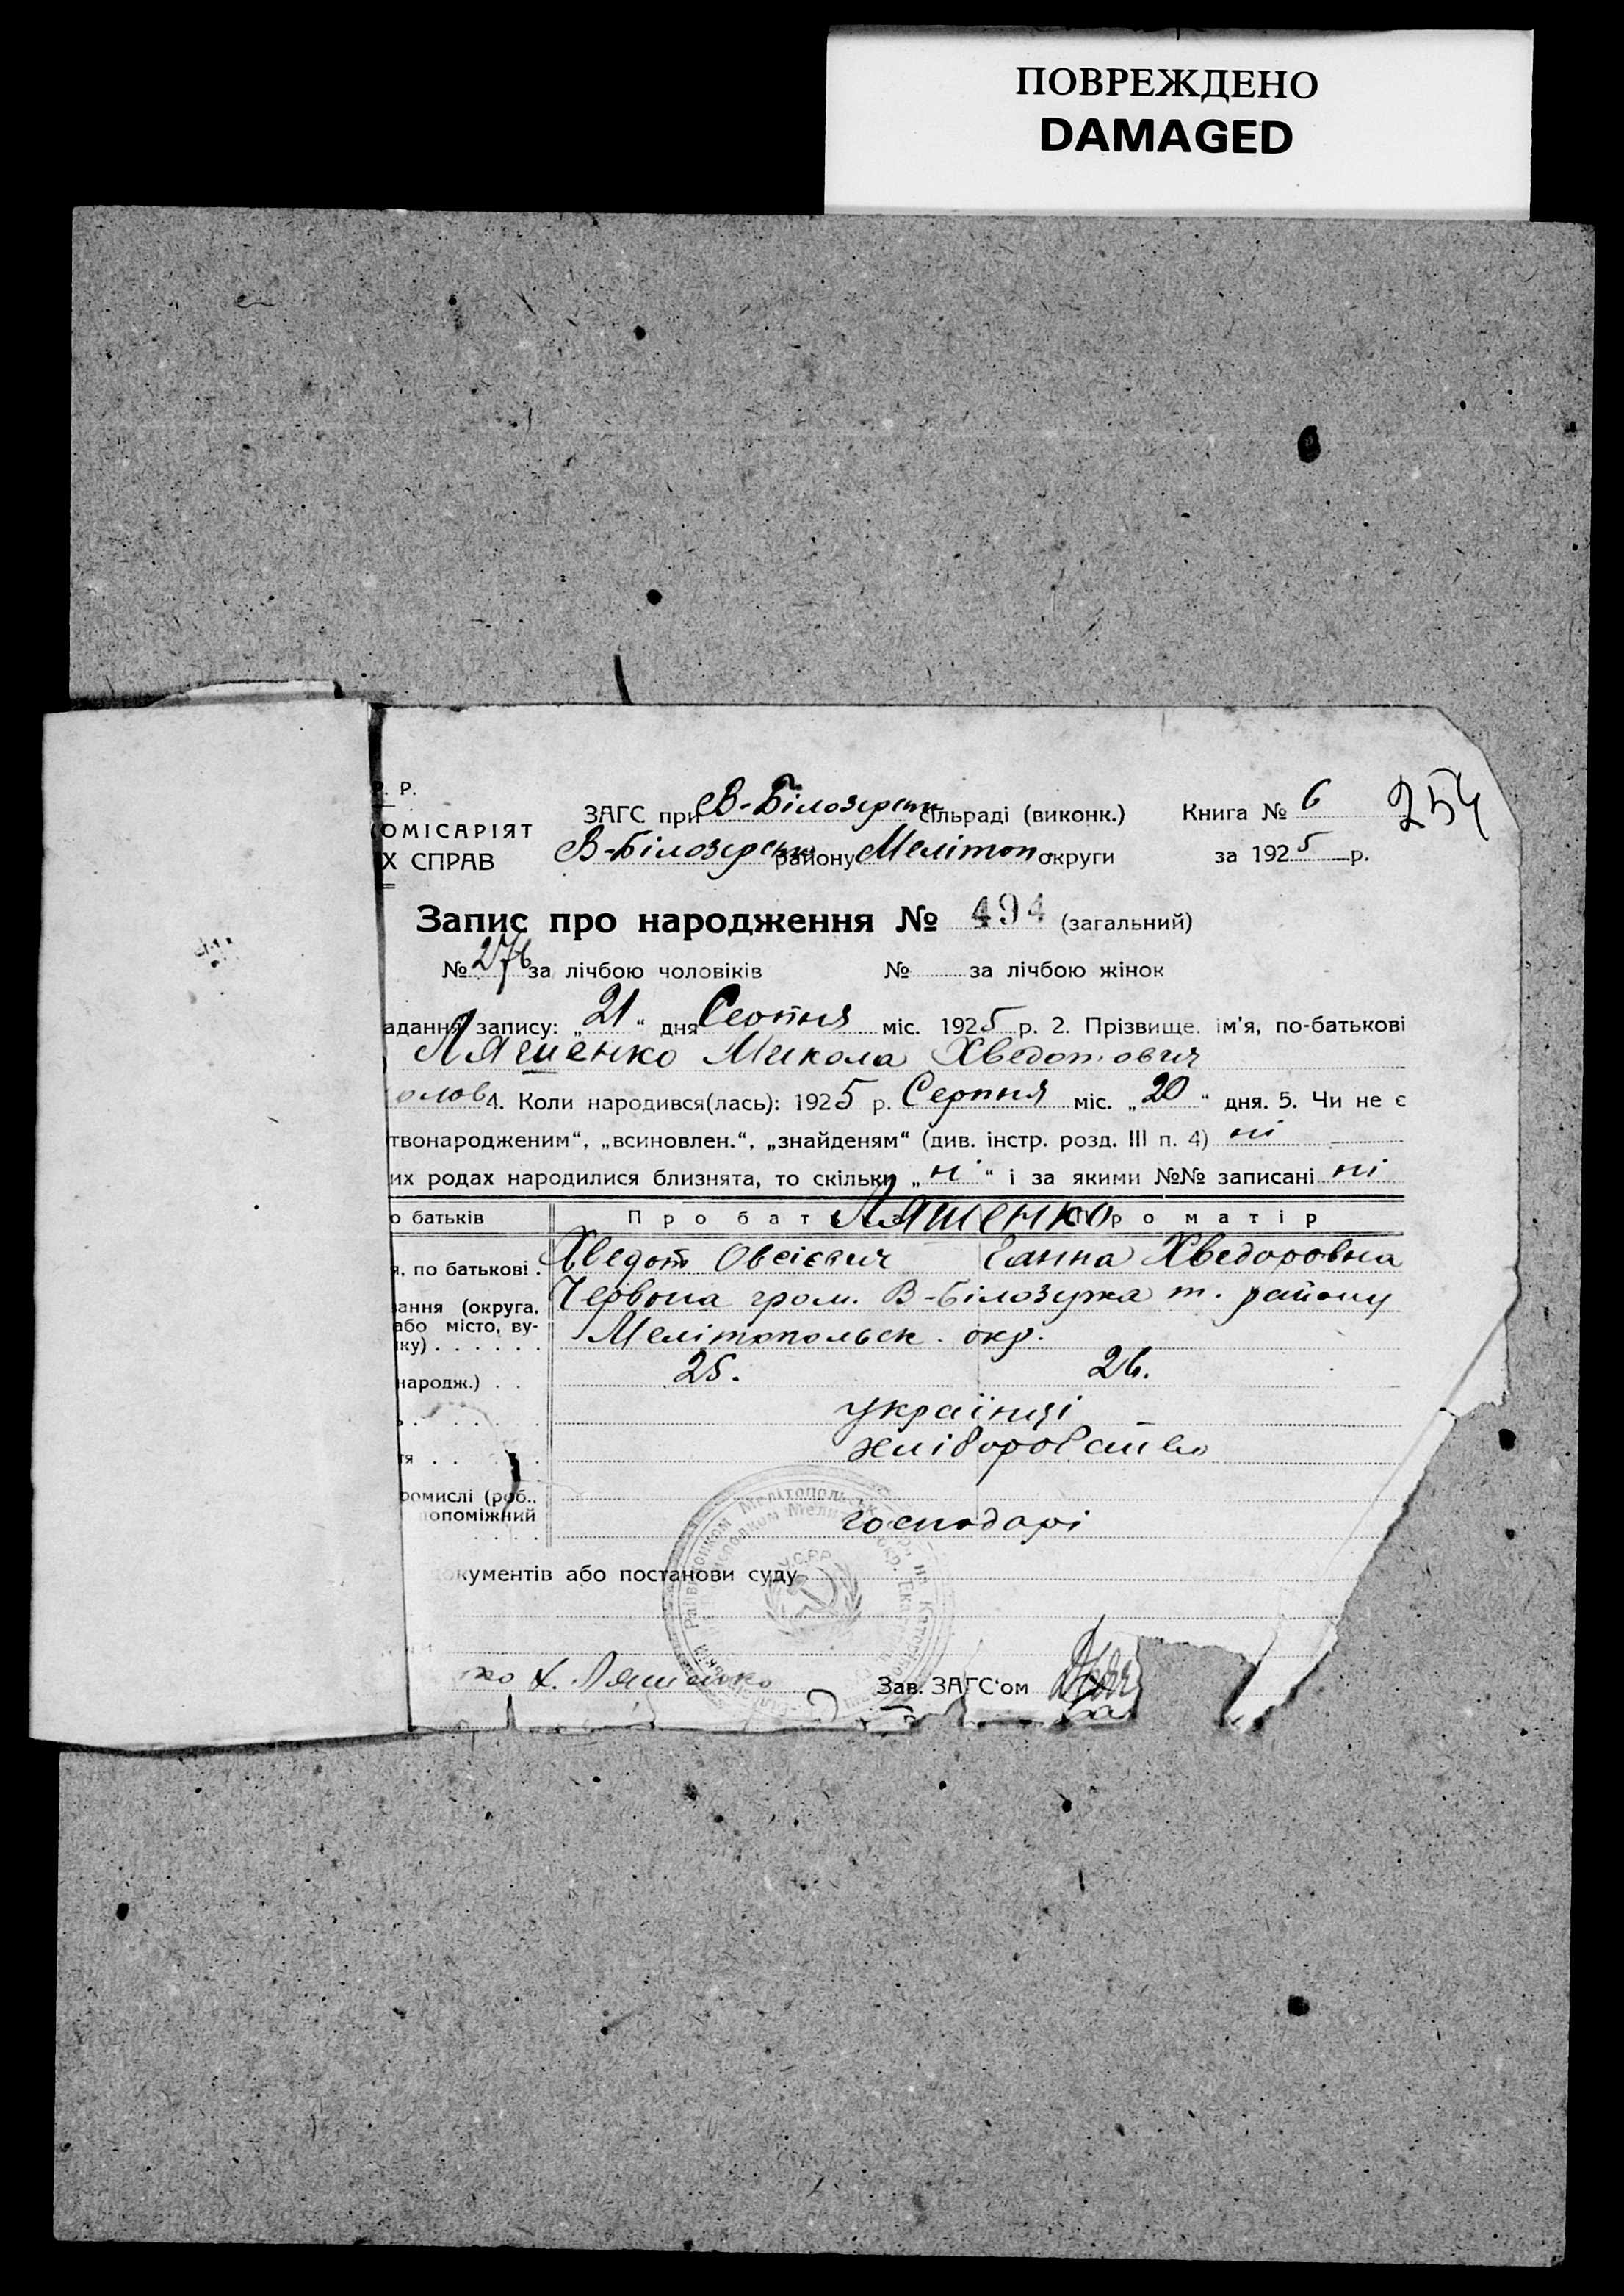 ПОВРЕЖДЕНО
DAMAGED
Р. Р.
ОМІСАРІЯТ
Х СПРАВ
ЗАГС при В-Білозерськ сільраді (виконк.) Книга № 6 254
В-Білозерськ району Мелітоп округи за 1925 р.
Запис про народження № 494 (загальний)
№ 276 за лічбою чоловіків № за лічбою жінок
адання запису: „21“ дня Серпня міс. 1925 р. 2. Прізвище, ім'я, по-батькові
Ляшенко Микола Хведотович
олов 4. Коли народився(лась): 1925 р. Серпня міс. „20“ дня. 5. Чи не є
твонародженим“, „всиновлен.“, „знайденям“ (див. інстр. розд. III п. 4) ні
их родах народилися близнята, то скільки „ні“ і за якими №№ записані ні
о батьків Про бат Ляшенко Про матір
я, по батькові . Хведот Овсієвич Ганна Хведоровна
ання (округа, Червона гром. В-Білозерка т. району
або місто, ву-
ку) . . . . . . Мелітопольск. окр.
народж.) . . 25. 26.
ь . . . . . . українці
тя . . . . хліборобство
ромислі (роб.,
допоміжний господарі
окументів або постанови суду
У.С.Р.Р.
ко Х. Ляшенко Зав. ЗАГС'ом